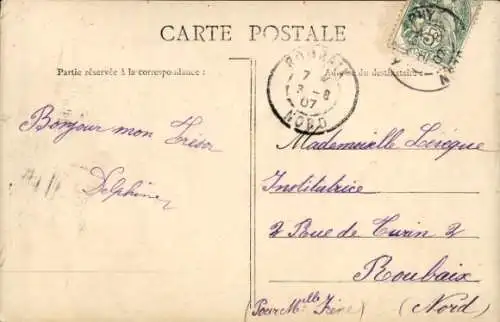 CARTE POSTALE
Partie réservée à la correspondance :
Adresse du destinataire :
ROUBAIX
7
3 - 8
07
NORD
5
Bonjour mon Trésor
Delphine
Mademoiselle Levêque
Institutrice
2 Rue de Turin 2
Roubaix
(Pour Melle Irène) (Nord)